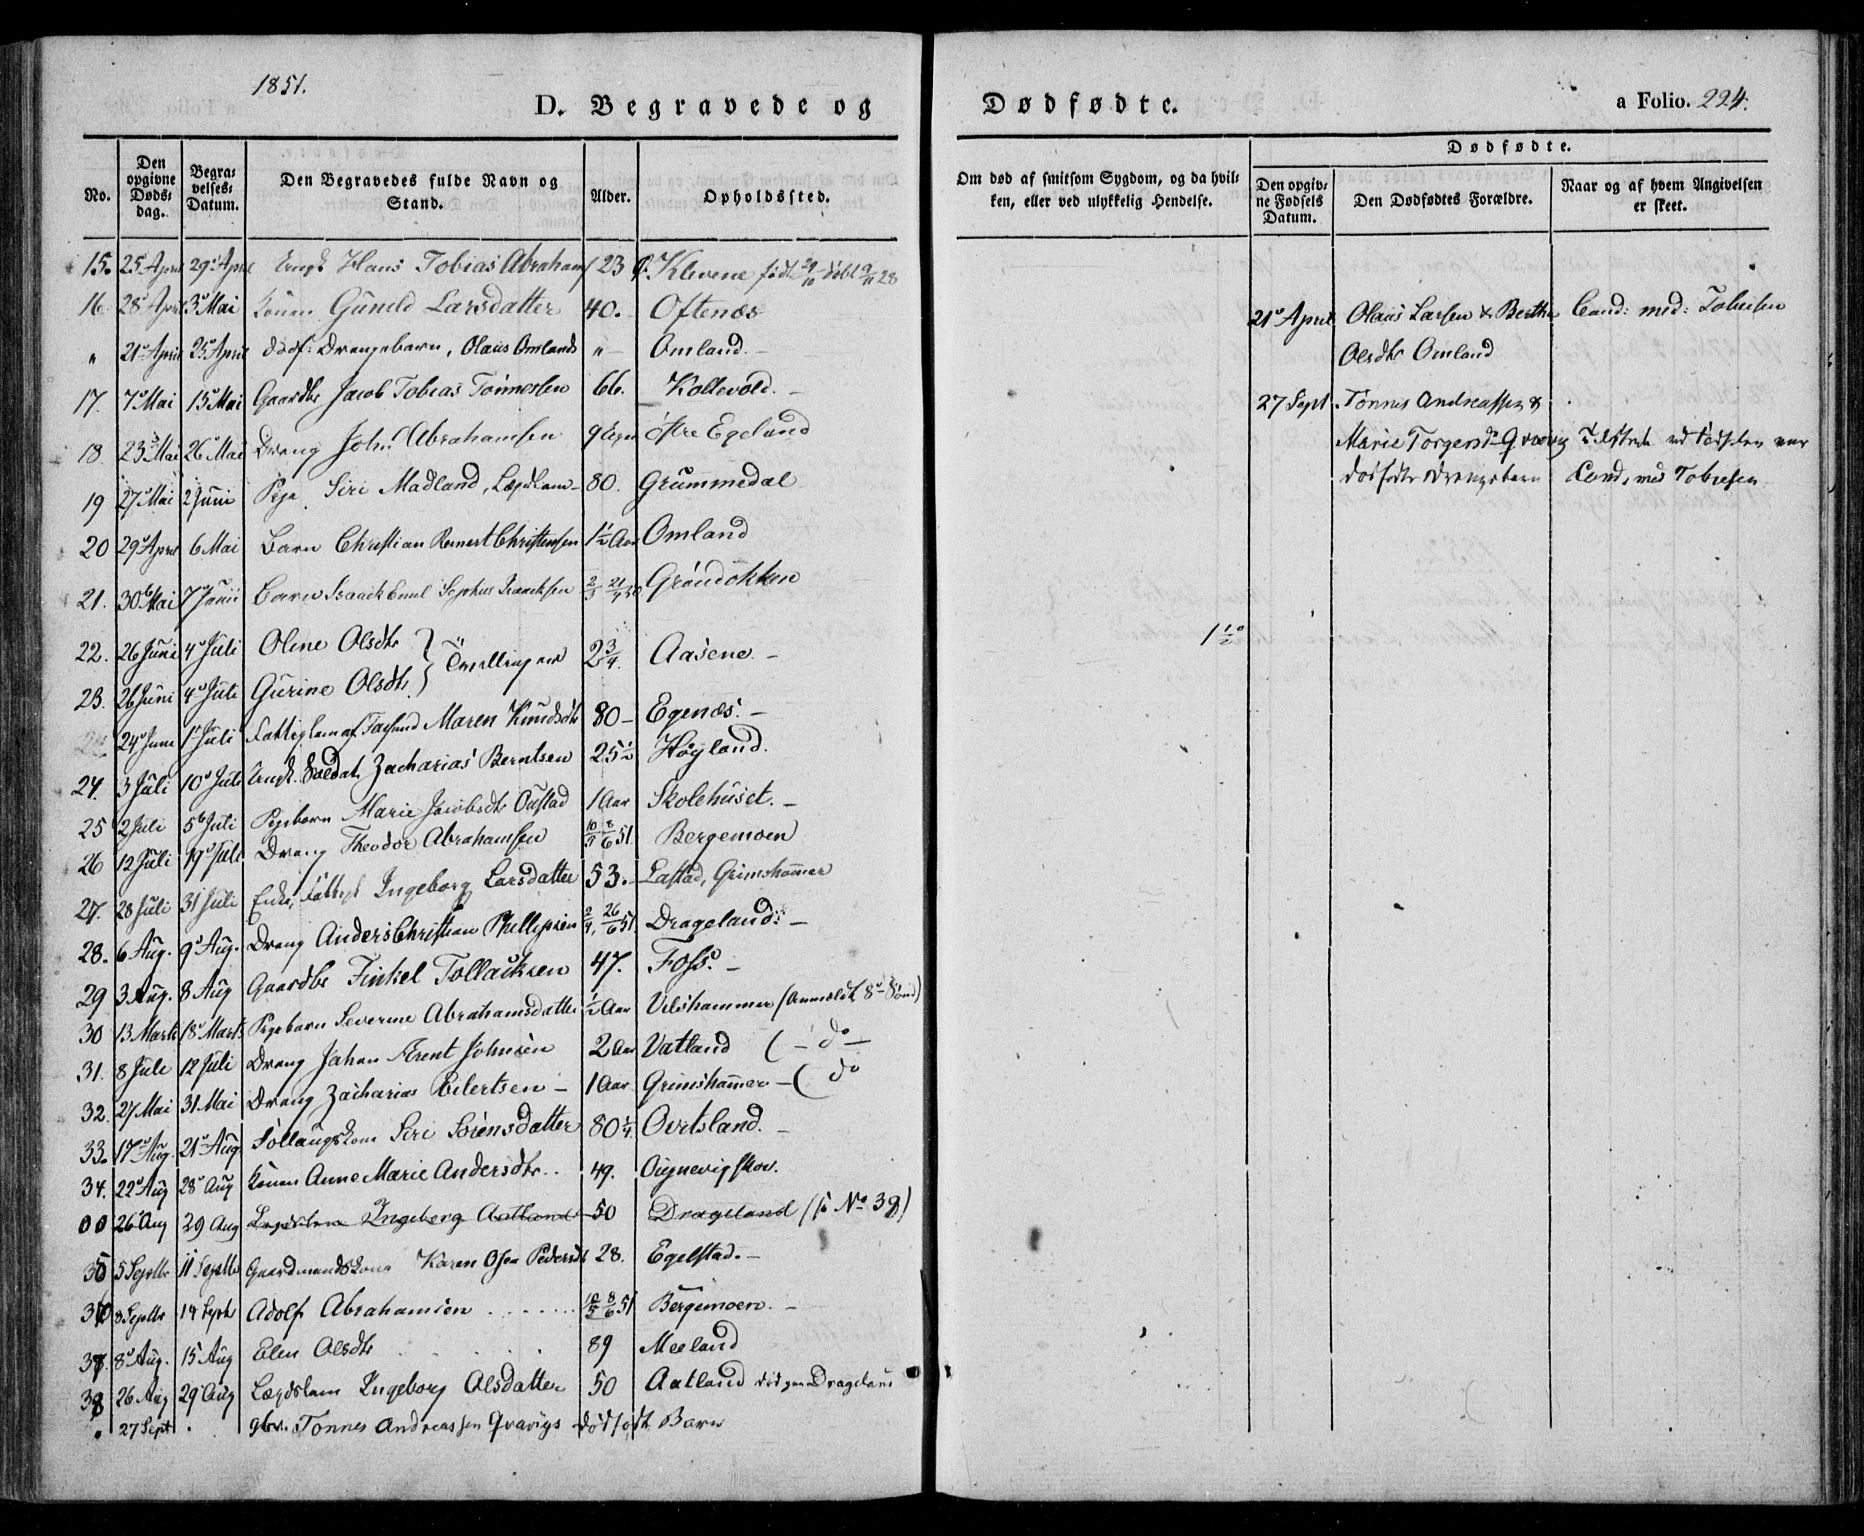 1851.
D. Begravede og Dødfødte. a Folio. 224.
No. Den opgivne Døds-dag. Begra-velses-Datum. Den Begravedes fulde Navn og Stand. Alder. Opholdssted.
Om død af smitsom Sygdom, og da hvil-ken, eller ved ulykkelig Hendelse.
Dødfødte.
Den opgiv-ne Fødsels Datum. Den Dødfødtes Forældre. Naar og af hvem Angivelsen er skeet.
15. 25 April 29 April Ungk Hans Tobias Abraham 23 Klevene født 29/10 døbt 9/11 28
16 28 April 3 Mai Konen Guneld Larsdatter 40. Oftenæs
" 21 April 25 April dødf: Drengebarn, Olaus Omlands " Omland.
17. 7 Mai 15 Mai Gaardbr Jacob Tobias Tönnessen 66. Kollevold.
18. 23 Mai 26 Mai Dreng John Abrahamsen 9 Egeland
19 27 Mai 2 Juni Pige Siri Madland, Lægdslem 80. Grummedal
20 29 April 6 Mai Barn Christian Reinert Christensen 1½ Aar Omland
21. 30 Mai 7 Juni Barn Isaack Emil Sophus Isaacksen Gröndokken
22. 26 Juni 4 Juli Oline Olsdtr } Tvillinger 2¾ Aasene.
23. 26 Juni 4 Juli Gurine Olsdtr }
24 Juni 1 Juli Fattiglem af Maren Knudsdtr 80 Egenæs.
24. 3 Juli 10 Juli Ungk. Soldat Zacharias Berntsen 25½ Höyland.
25 2 Juli 5 Juli Pigebarn Marie Jacobsdtr 1 Aar Skolehuset.
26 12 Juli 19 Juli Dreng Theodor Abrahamsen 10/5 8/6 51. Bergemoen
27. 28 Juli 31 Juli Enke, Fattigl Ingeborg Larsdatter 53. Lastad, Grimshammer
28. 6 Aug. 9 Aug. Dreng Anders Christian Phillipsen 26/6 51. Drageland
29 3 Aug. 8 Aug Gaardbr Finkel Tollacksen 47. Foss.
30 13 Marts 18 Marts Pigebarn Severine Abrahamsdatter ½ Aar Vilshammer (Anmeldt 8
31. 8 Juli 12 Juli Dreng Johan Arent Johnsen 2 Aar Vatland ( do
32. 27 Mai 31 Mai Dreng Zacharias Eilertsen 1 Aar Grimshammer ( do
33. 17 Aug. 21 Aug Siri Sörensdatter 80¼ Ovrtsland.
34. 22 Aug 28 Aug Konen Anne Marie Andersdtr. 49.
00 26 Aug 29 Aug Lægdslem Ingeborg Aatland 50 Drageland (No 38)
35 5 Septbr 11 Septbr Gaardmandskone Karen Osea Pedersdtr 28. Egelstad.
36 8 Septbr 14 Septbr Adolf Abrahamsen 10/5 8/6 51 Bergemoen.
37 8 Aug. 15 Aug Elen Olsdtr 89 Meeland
38 26 Aug 29 Aug Lægdslem Ingeborg Olsdatter 50 Aatland død paa Drageland
" 27 Sept " Tonnes Andreassen Qvavigs dødfødt Barn
21 April Olaus Larsen & Berthe Cand: med: Tobiesen
Olsdtr Omland
27 Sept Tönnes Andreassen &
Marie Torgersdtr Qvavig ved Födselen var
dødfødte Drengebarn Cand. med Tobiesen
1½